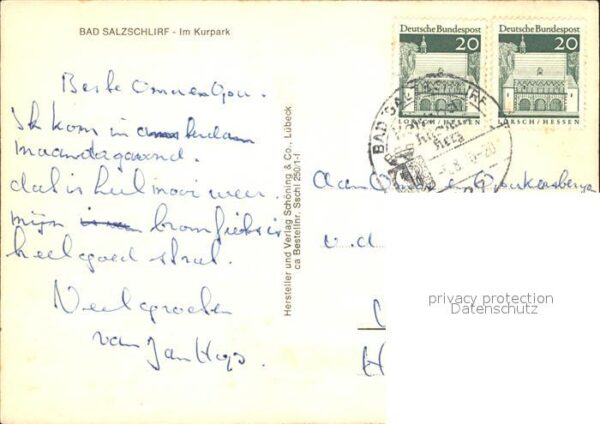 BAD SALZSCHLIRF - Im Kurpark
Beste
Ik kom in Amsterdam
maandagavond.
dat is heel mooi weer.
mijn bromfiets is
heel goed
Veel groeten
van Jan
Hersteller und Verlag Schöning & Co., Lübeck
ca Bestellnr. Sschl 250/1-f
Deutsche Bundespost
20
LORSCH / HESSEN
Deutsche Bundespost
20
LORSCH / HESSEN
BAD SALZSCHLIRF
Aan
v. d
privacy protection
Datenschutz